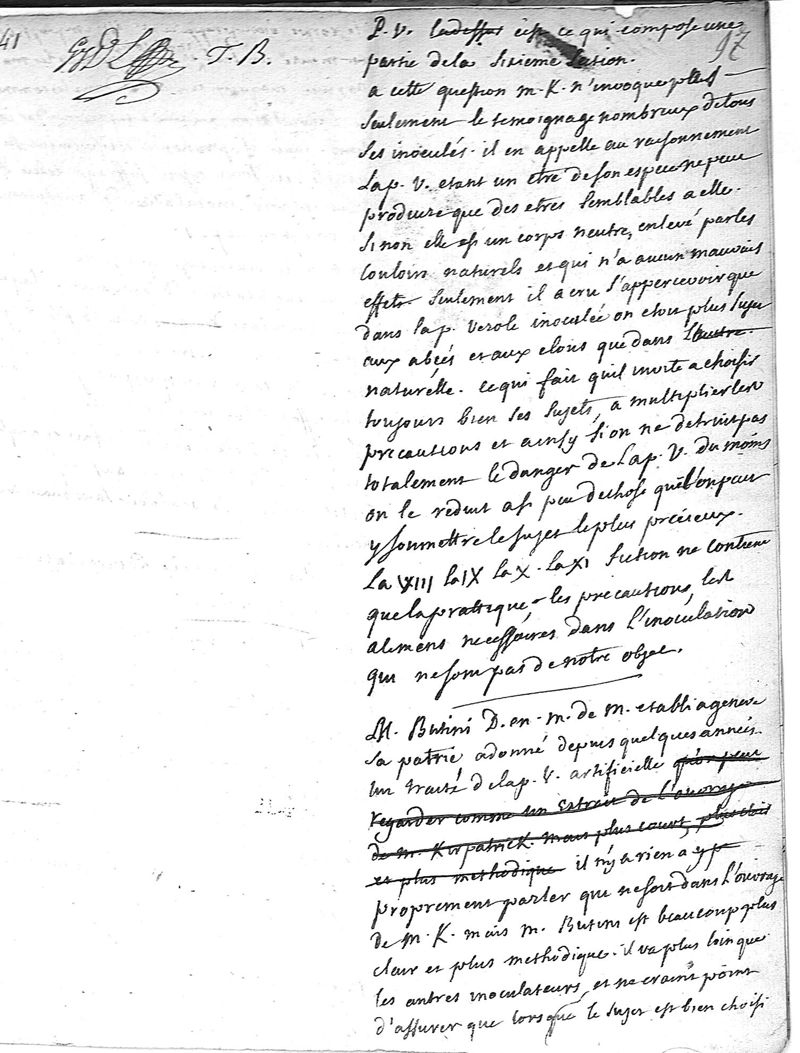 41
T. B.
97
P. V. c'est ce qui compose une
partie de la sixieme section.
a cette question m. K. n'invoque plus
seulement le temoignage nombreux de tous
ses inoculés. il en appelle au raisonnement
La p. V. etant un etre de son espece ne peut
produire que des etres semblables a elle.
sinon elle est un corps neutre, enlevé par les
couloirs naturels et qui n'a aucun mauvais
effets seulement il a cru s'appercevoir que
dans la p. verole inoculée on etoit plus sujet
aux abcés et aux clous que dans l'autre.
naturélle. ce qui fait qu'il invite a choisir
toujours bien ses sujets, a multiplier les
precautions et ainsy si on ne detruit pas
totalement le danger de La p. V. du moins
on le reduit a si peu de chose qu'el'on peut
y soumettre le sujet le plus précieux.
La VIII la IX la X. la XI section ne contient
que la prattique les precautions, les
alimens necessaires dans l'inoculation
qui ne sont pas de notre objet.
M. Butini D. en. m. de M. etabli a geneve
sa patrie a donné depuis quelques années
un traité de la p. V. artificielle qu'on peut
regarder comme un extrait de l'ouvrage
de m. Kirpatrick. mais plus court, plus clair
et plus methodique il n'y a rien a
proprement parler que ne soit dans l'ouvrage
de m. K. mais m. Butini est beaucoup plus
clair et plus methodique. il va plus loin que
les autres inoculateurs, et ne craint point
d'assurer que lorsque le sujet est bien choisi